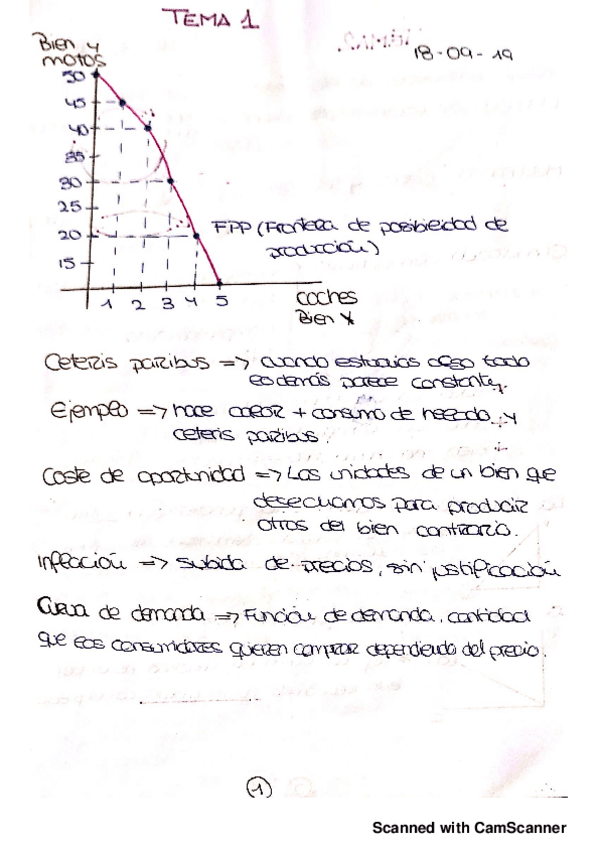 TEMA 1
18-09-19
Bien y
motos
50
45
40
35
30
25
20
15
FPP (Frontera de posibilidad de
producción)
1 2 3 4 5
coches
Bien X
Ceteris paribus => cuando estudias algo todo
lo demás parece constante.
Ejemplo => hace calor + consumo de helado y
ceteris paribus.
Coste de oportunidad => Las unidades de un bien que
desechamos para producir
otros del bien contrario.
Inflación => subida de precios, sin justificación
Curva de demanda => Función de demanda, cantidad
que los consumidores quieren comprar dependiendo del precio.
1
Scanned with CamScanner